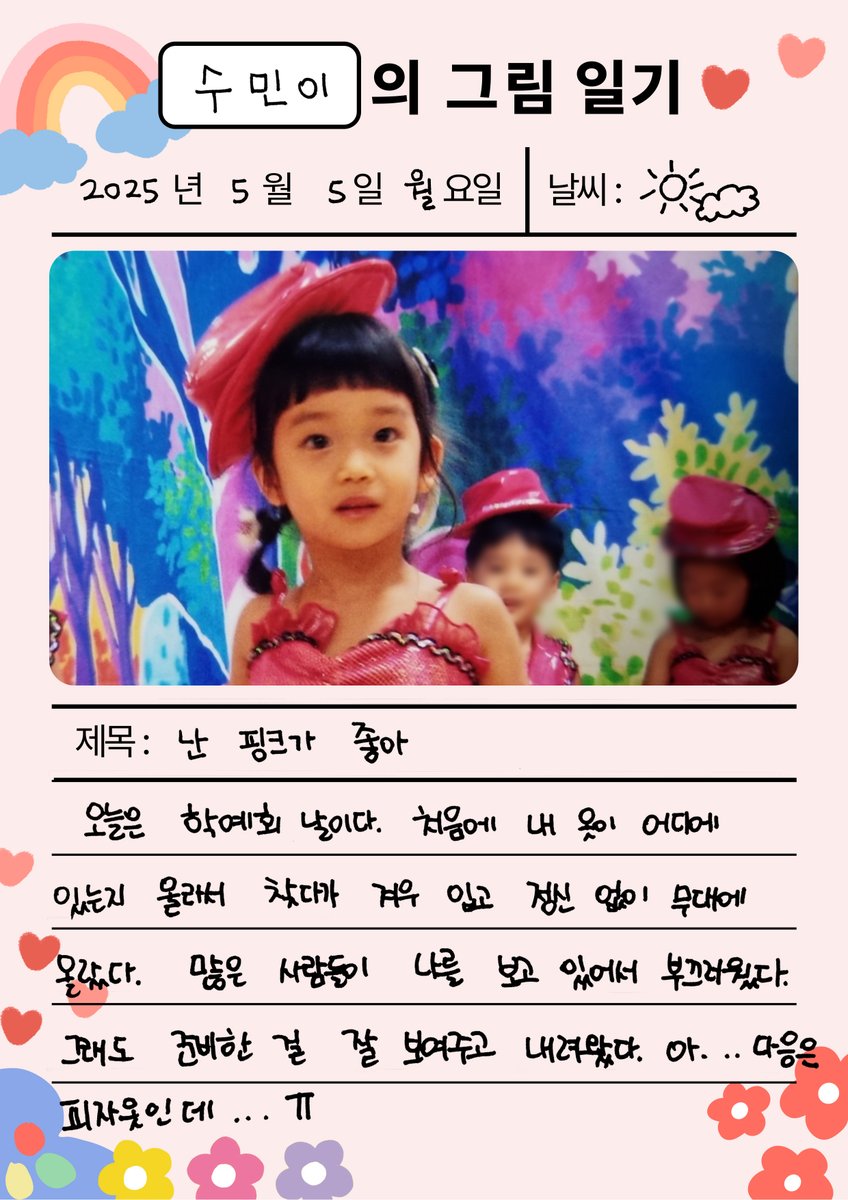 수민이의 그림 일기
2025년 5월 5일 월요일 날씨:
제목: 난 핑크가 좋아
오늘은 학예회 날이다. 처음에 내 옷이 어디에
있는지 몰라서 찾다가 겨우 입고 정신 없이 무대에
올랐다. 많은 사람들이 나를 보고 있어서 부끄러웠다.
그래도 준비한 걸 잘 보여주고 내려왔다. 아... 다음은
피자옷인데 ... ㅠ